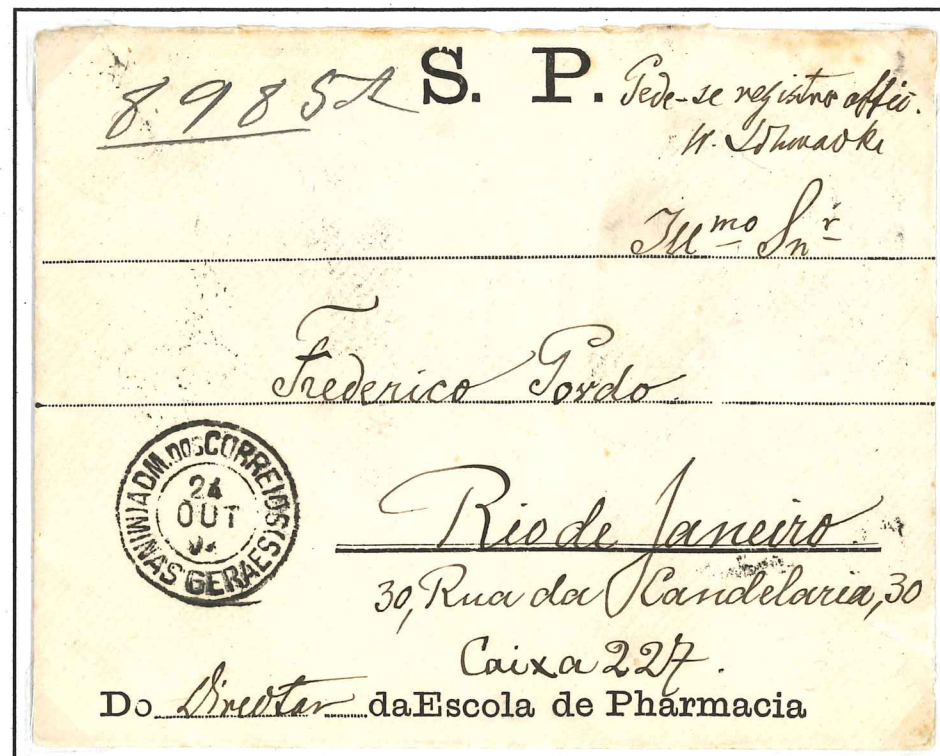 8985 S. P. Pede-se registro offic.
W. Schwacke
Ill.mo Snr
Frederico Gordo.
Rio de Janeiro.
ADM. DOS CORREIOS (S)
24
OUT
MINAS GERAES
30, Rua da Candelaria, 30
Caixa 227.
Do Director da Escola de Pharmacia